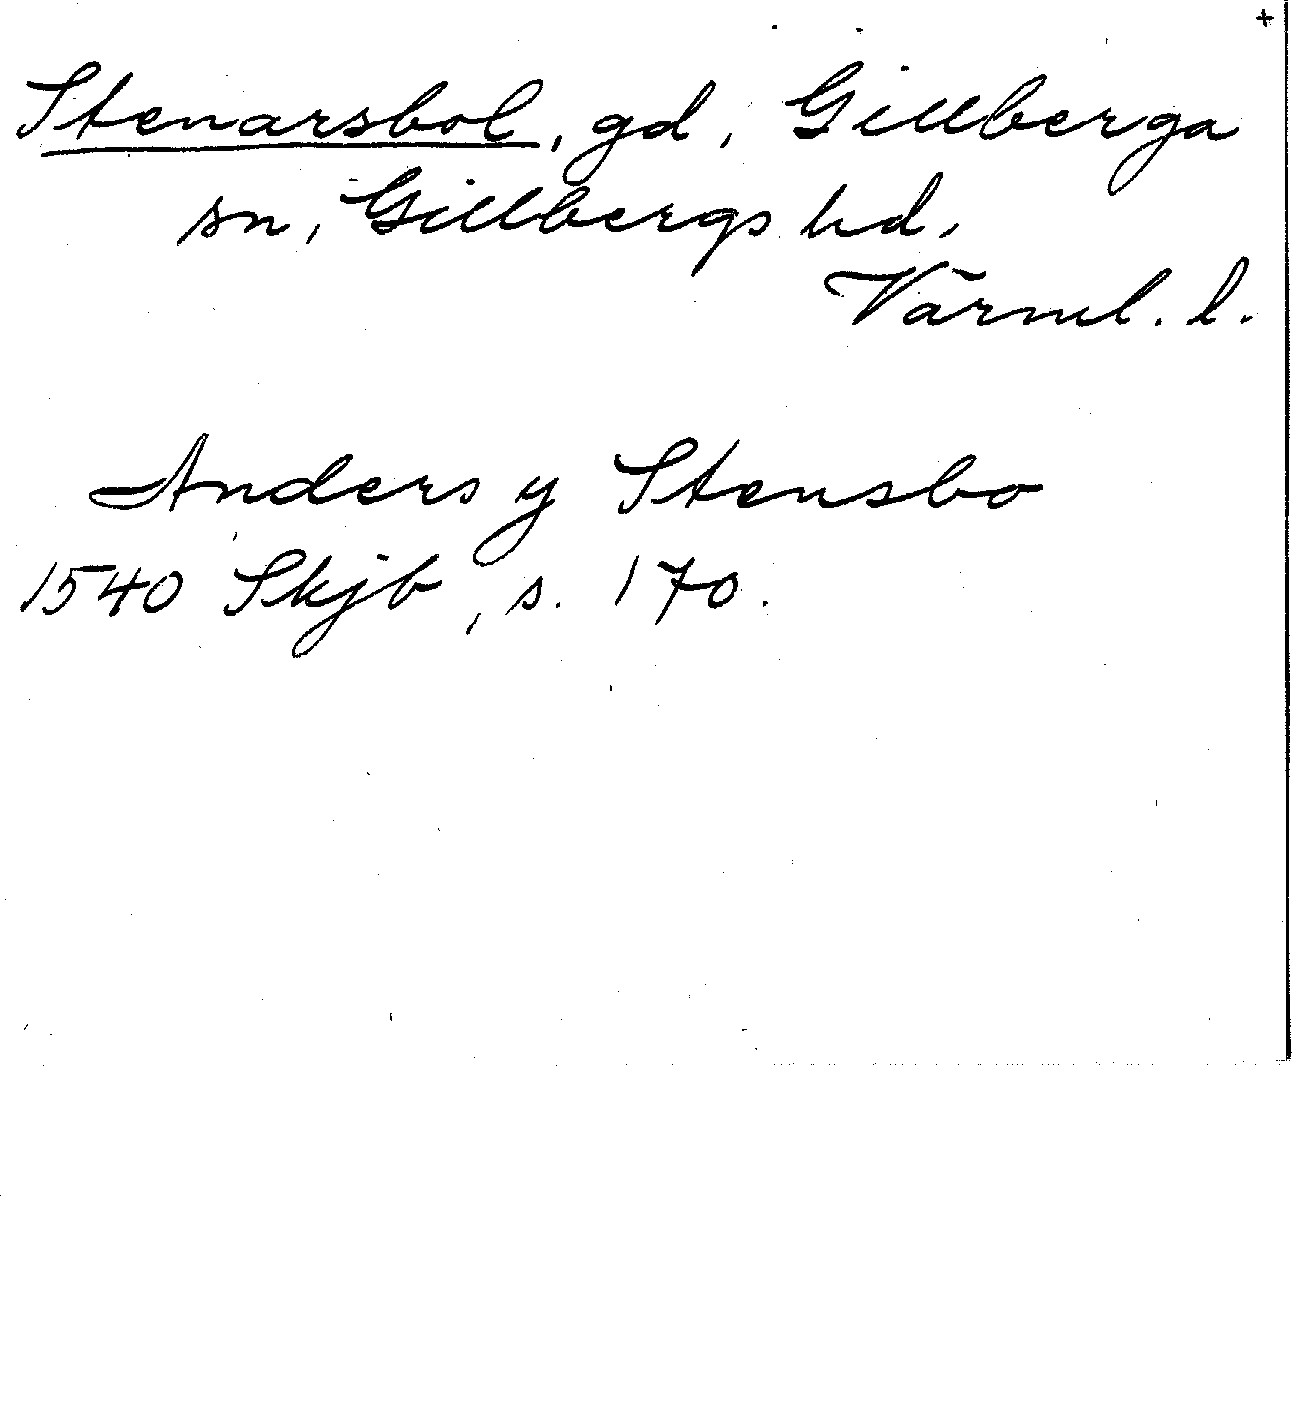 +
Stenarsbol, gd, Gillberga
sn, Gillbergs hd,
Värml. l.
Anders y Stensbo
1540 Skjb, s. 170.